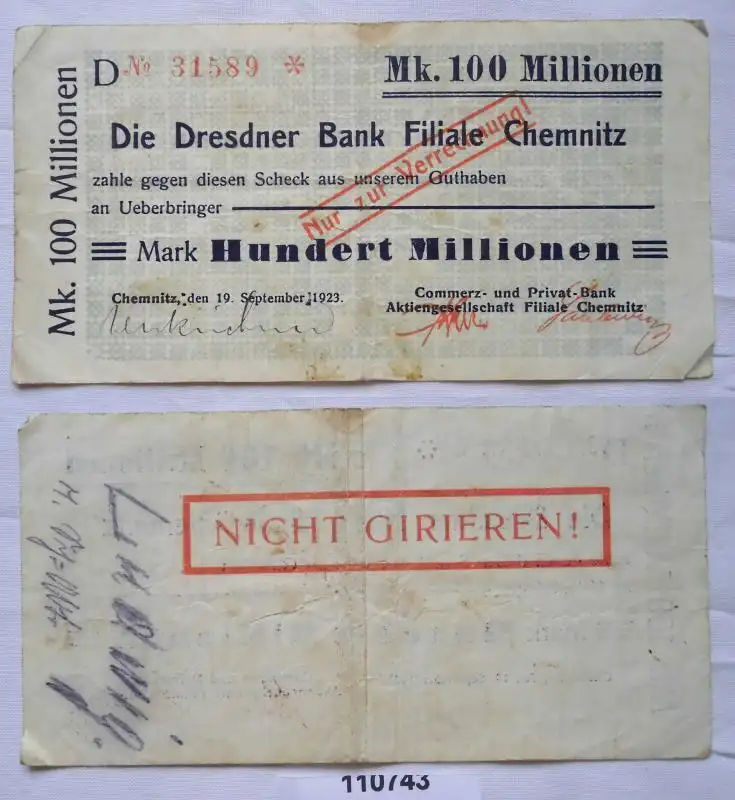 Mk. 100 Millionen
D № 31589 *
Mk. 100 Millionen
Die Dresdner Bank Filiale Chemnitz
zahle gegen diesen Scheck aus unserem Guthaben
an Ueberbringer
Nur zur Verrechnung!
Mark Hundert Millionen
Chemnitz, den 19. September 1923.
Commerz- und Privat-Bank
Aktiengesellschaft Filiale Chemnitz
NICHT GIRIEREN!
110743